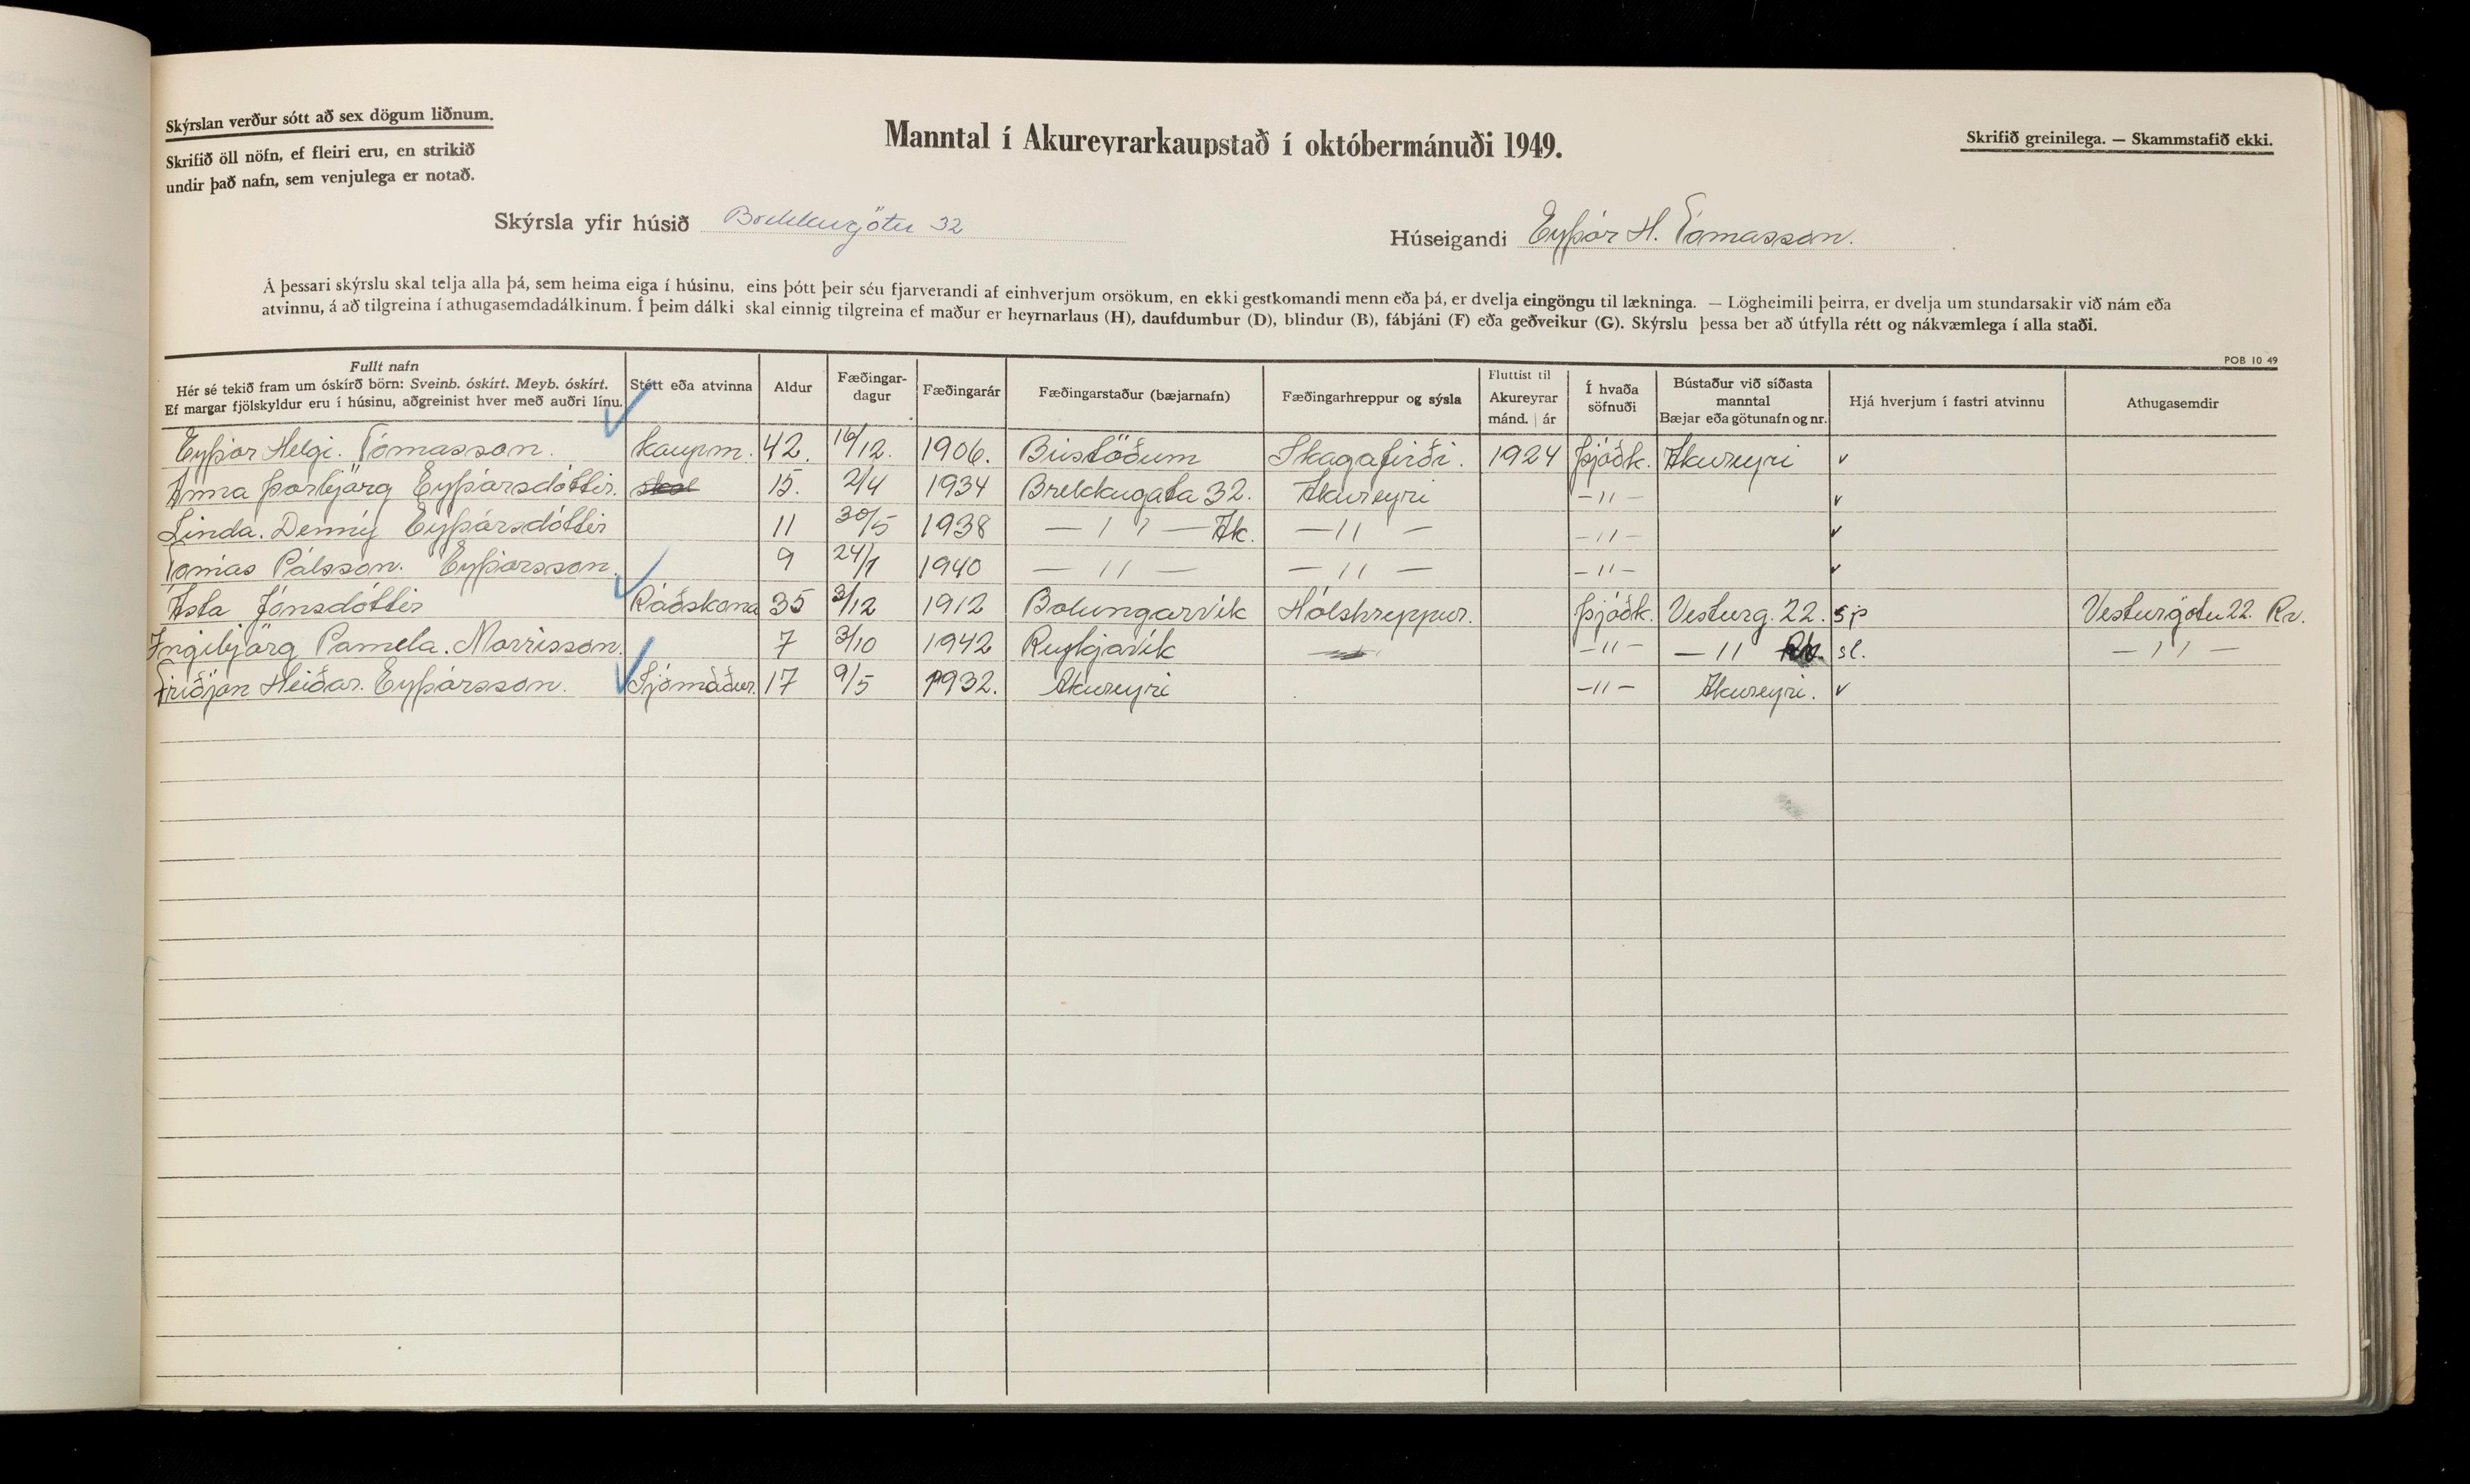 Skýrslan verður sótt að sex dögum liðnum.
Skrifið öll nöfn, ef fleiri eru, en strikið
undir það nafn, sem venjulega er notað.
Manntal í Akureyrarkaupstað í októbermánuði 1949.
Skrifið greinilega. — Skammstafið ekki.
Skýrsla yfir húsið Brekkugötu 32
Húseigandi Eyþór H. Tómasson.
Á þessari skýrslu skal telja alla þá, sem heima eiga í húsinu, eins þótt þeir séu fjarverandi af einhverjum orsökum, en ekki gestkomandi menn eða þá, er dvelja eingöngu til lækninga. — Lögheimili þeirra, er dvelja um stundarsakir við nám eða
atvinnu, á að tilgreina í athugasemdadálkinum. Í þeim dálki skal einnig tilgreina ef maður er heyrnarlaus (H), daufdumbur (D), blindur (B), fábjáni (F) eða geðveikur (G). Skýrslu þessa ber að útfylla rétt og nákvæmlega í alla staði.
POB 10 49
Fullt nafn
Hér sé tekið fram um óskírð börn: Sveinb. óskírt. Meyb. óskírt.
Ef margar fjölskyldur eru í húsinu, aðgreinist hver með auðri línu.
Stétt eða atvinna
Aldur
Fæðingar-
dagur
Fæðingarár
Fæðingarstaður (bæjarnafn)
Fæðingarhreppur og sýsla
Fluttist til
Akureyrar
mánd. | ár
Í hvaða
söfnuði
Bústaður við síðasta
manntal
Bæjar eða götunafn og nr.
Hjá hverjum í fastri atvinnu
Athugasemdir
Eyþór Helgi. Tómasson. Kaupm. 42. 16/12. 1906. Bústöðum Skagafirði. 1924 Þjóðk. Akureyri v
Anna Þorbjörg Eyþórsdóttir. skol 15. 2/4 1934 Brekkugata 32. Akureyri —〃— v
Linda. Denný Eyþórsdóttir 11 30/5 1938 —〃— Ak. —〃— —〃— v
Tómas Pálsson. Eyþórsson. 9 24/7 1940 —〃— —〃— —〃— v
Ásta Jónsdóttir Ráðskona 35 3/12 1912 Bolungarvík Hólshreppur. Þjóðk. Vesturg. 22. sp Vesturgötu 22. Rv.
Ingibjörg Pamela. Morrisson. 7 3/10 1942 Reykjavík —〃— —〃— Rk. sl. —〃—
Friðjón Heiðar. Eyþórsson. Sjómaður. 17 9/5 1932. Akureyri —〃— Akureyri. v